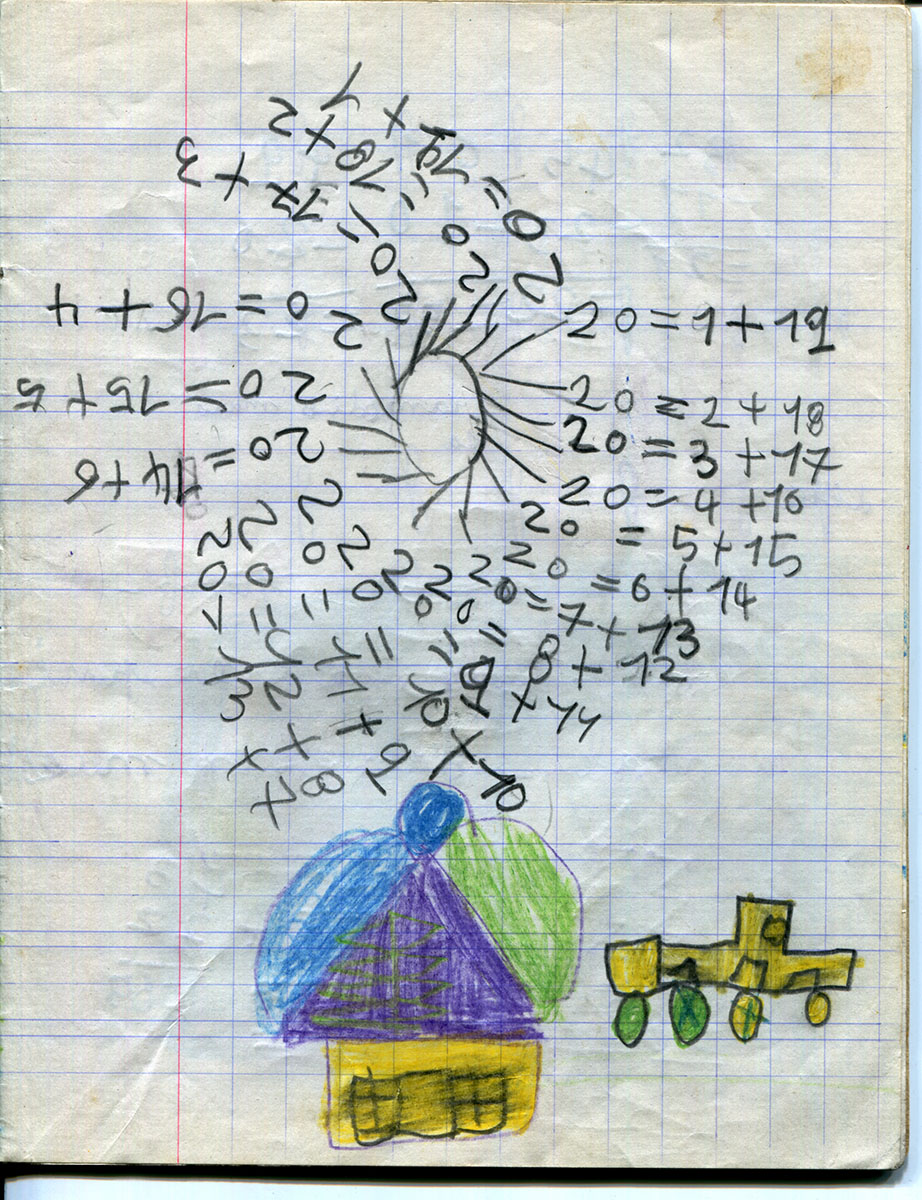 20=1+19
20=2+18
20=3+17
20=4+16
20=5+15
20=6+14
20=7+13
20=8+12
20=9+11
20=10+10
20=11+9
20=12+8
20=13+7
20=14+6
20=15+5
20=16+4
20=17+3
20=18+2
20=19+1